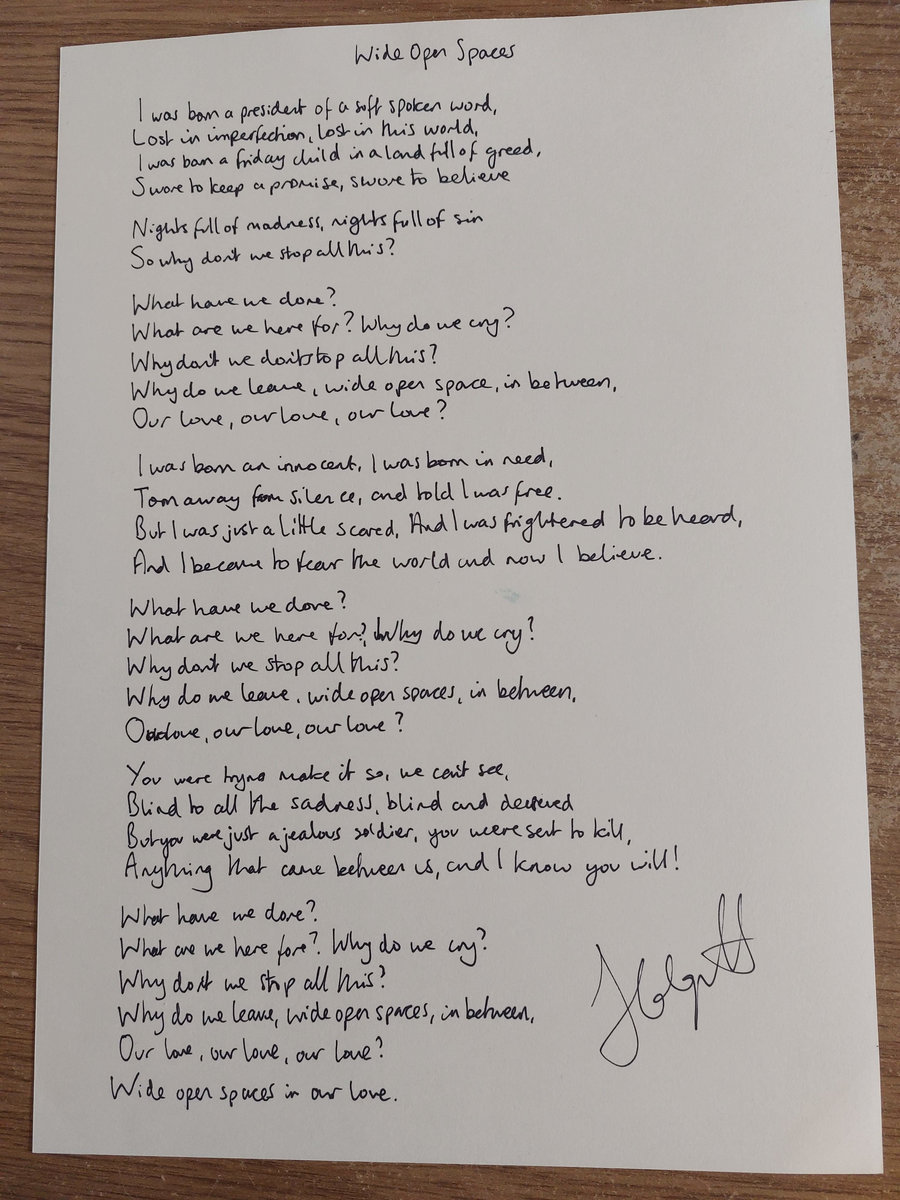 Wide Open Spaces
I was born a president of a soft spoken word,
Lost in imperfection, lost in this world,
I was born a friday child in a land full of greed,
Swore to keep a promise, swore to believe
Nights full of madness, nights full of sin
So why don't we stop all this?
What have we done?
What are we here for? Why do we cry?
Why don't we don't stop all this?
Why do we leave, wide open space, in between,
Our love, our love, our love?
I was born an innocent, I was born in need,
Torn away from silence, and told I was free.
But I was just a little scared, And I was frightened to be heard,
And I became to fear the world and now I believe.
What have we done?
What are we here for? Why do we cry?
Why don't we stop all this?
Why do we leave, wide open spaces, in between,
Our love, our love, our love?
You were tryna make it so, we can't see,
Blind to all the sadness, blind and deceived
But you were just a jealous soldier, you were sent to kill,
Anything that came between us, and I know you will!
What have we done?
What are we here fore? Why do we cry?
Why don't we stop all this?
Why do we leave, wide open spaces, in between,
Our love, our love, our love?
Wide open spaces in our love.